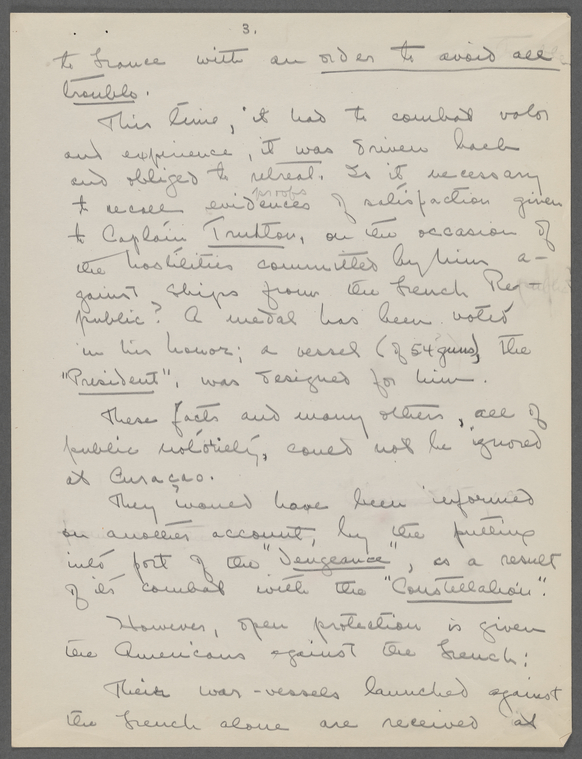 3.
to France with an order to avoid all
trouble.
This time, it had to combat valor
and experience, it was driven back
and obliged to retreat. Is it necessary
proofs
to recall evidences of satisfaction given
to Captain Truxton, on the occasion of
the hostilities committed by him a-
gainst ships from the French Re-
public? A medal has been voted
in his honor; a vessel (of 54 guns) the
"President", was designed for him.
These facts and many others, all of
public notoriety, could not be ignored
at Curaçao.
They would have been informed
on another account, by the putting
into port of the "Vengeance", as a result
of its combat with the "Constellation".
However, open protection is given
the Americans against the French:
Their war-vessels launched against
the French alone are received at